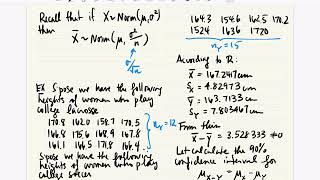 Recall that if X~Norm(μ,σ²)
then
X̄~Norm(μ, σ²/n)
σ/√n
EX Spose we have the following
heights of women who play
college lacrosse
170.8 162.0 158.7 170.5
166.8 175.6 168.9 167.8
161.1 166.5 171.8 166.4
nₓ=12
Spose we have the following
heights of women who
164.3 154.6 162.5 170.2
152.4 163.6 172.0
n_Y=15
According to R:
X̄ = 167.2417cm
Sₓ = 4.82973
Ȳ = 163.7133cm
S_Y = 7.803467cm
From this
X̄-Ȳ = 3.528333 ≠0
Let calculate the 90%
confidence interval for
μ_X-Y = μ_X - μ_Y